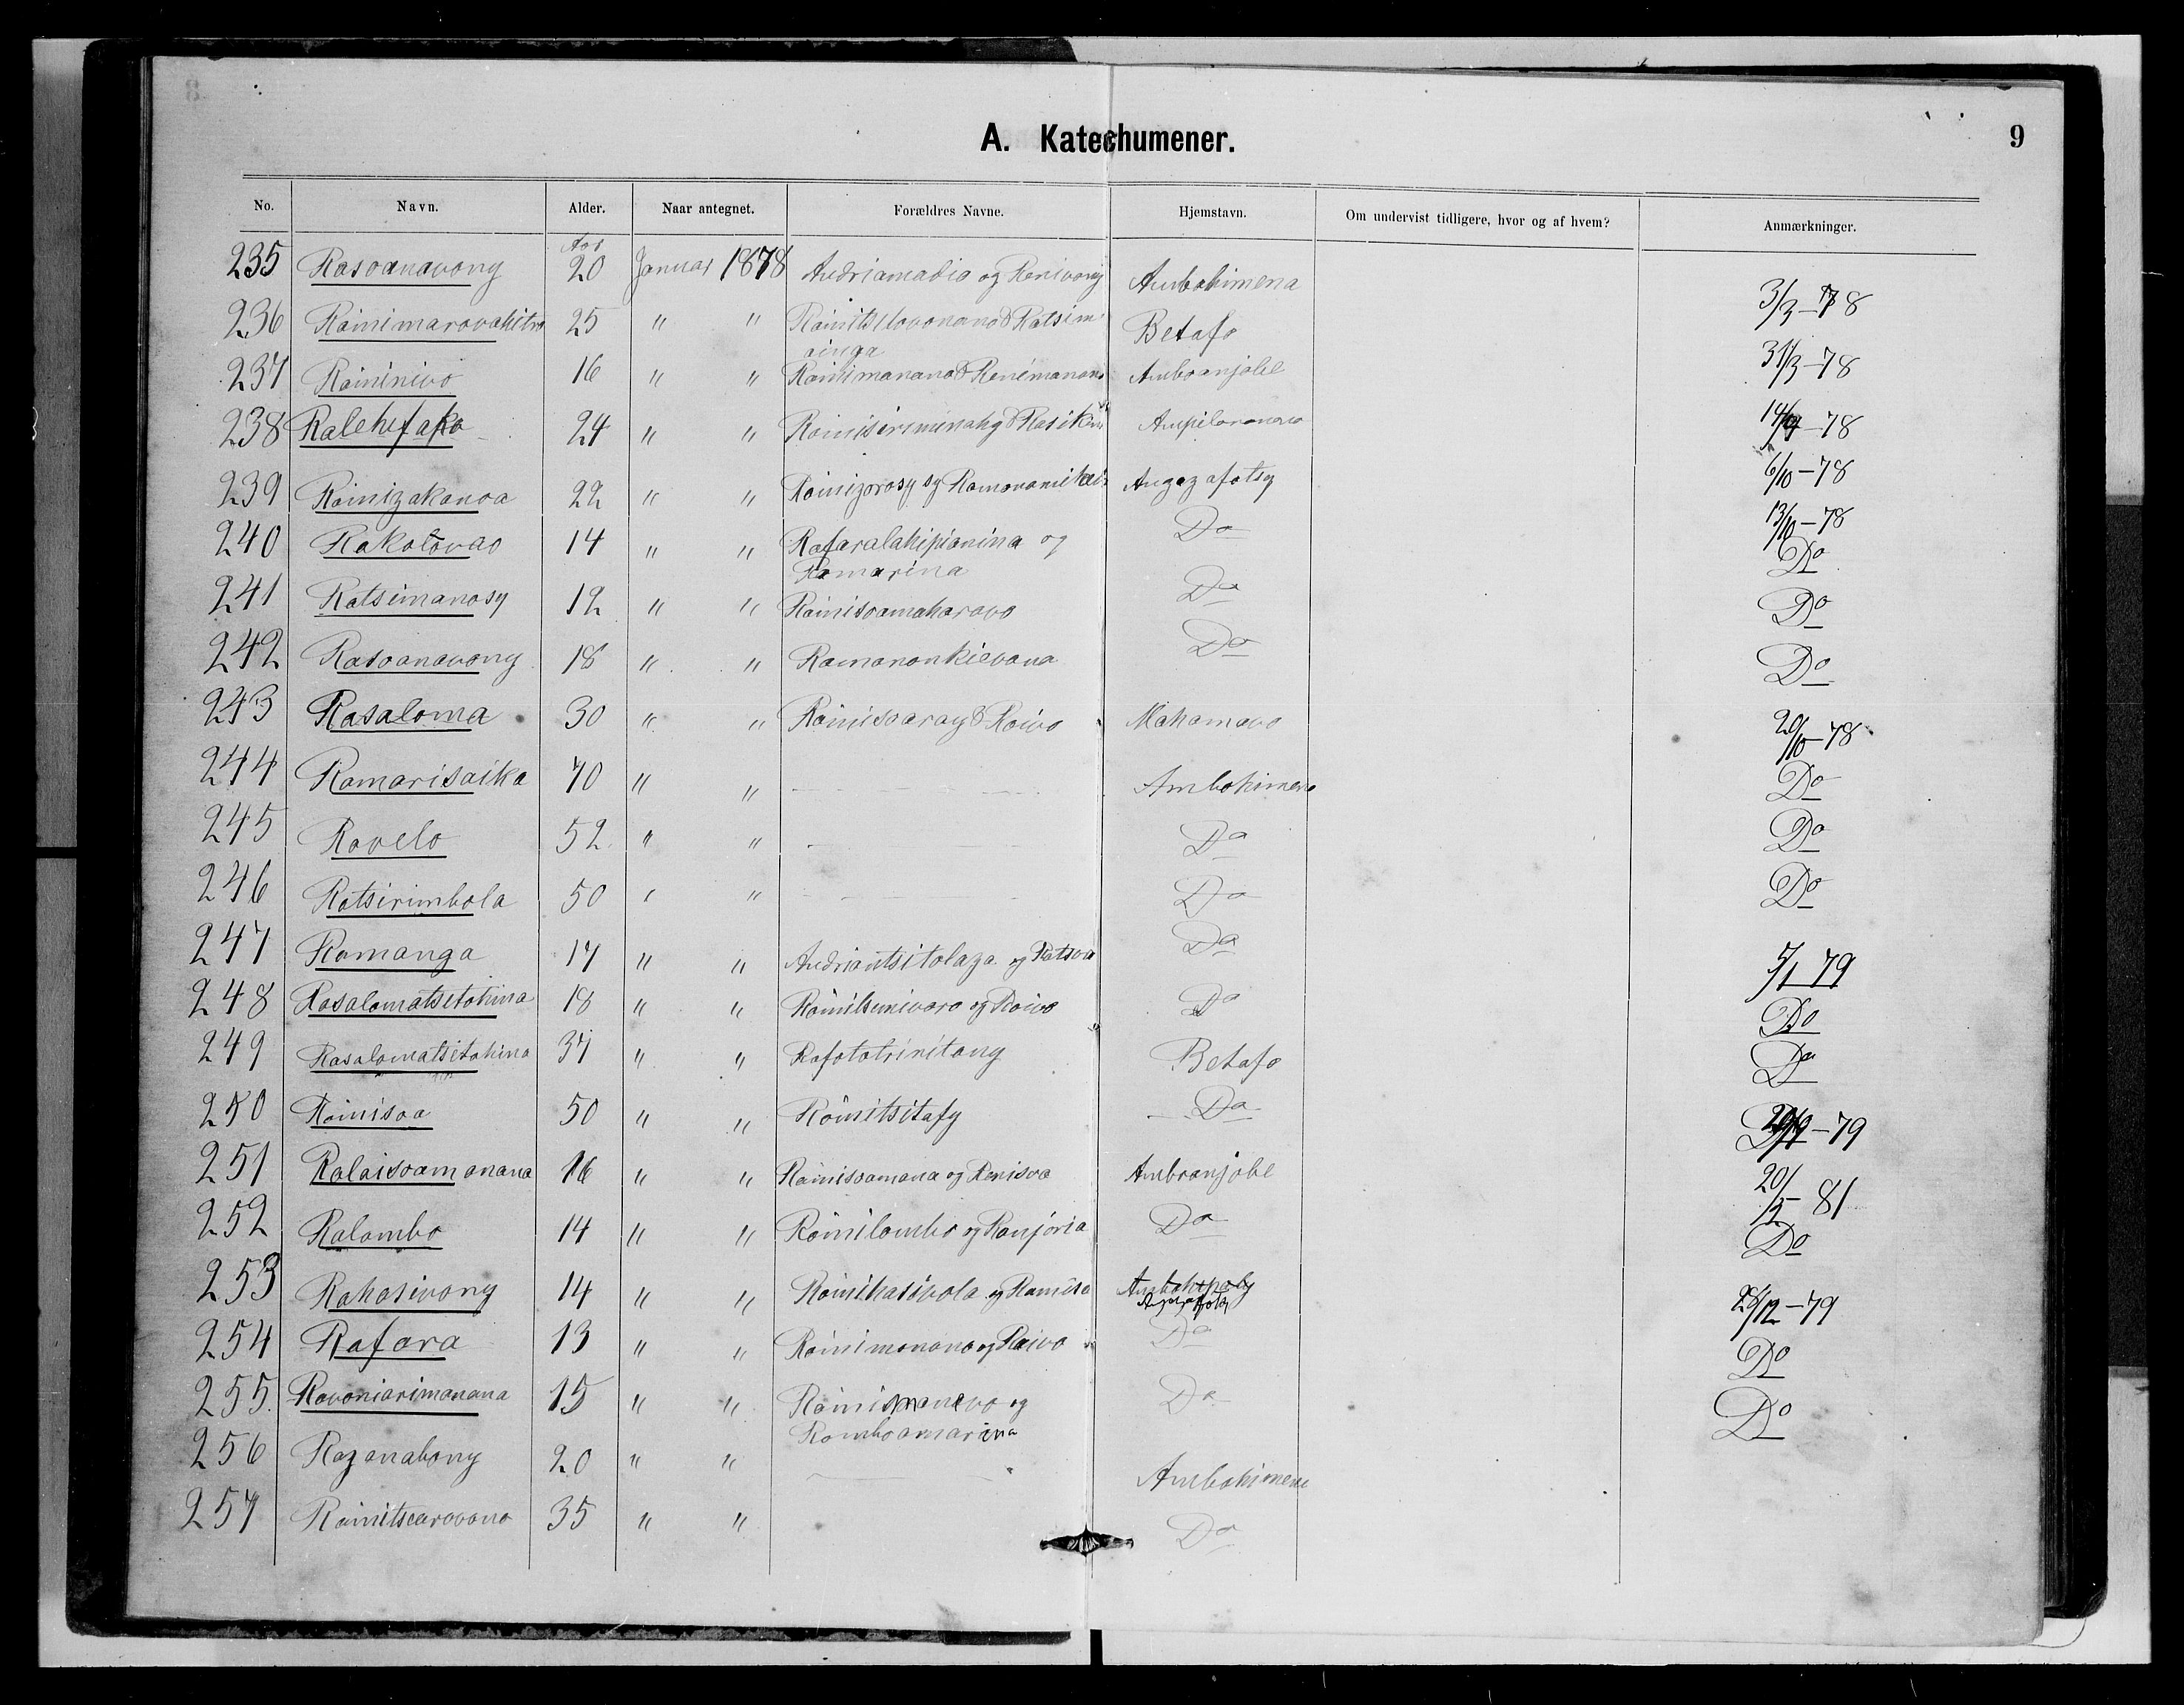 9
A. Katechumener.
No. Navn. Alder. Naar antegnet. Forældres Navne. Hjemstavn. Om undervist tidligere, hvor og af hvem? Anmærkninger.
Aar
235 Rasoanavony 20 Januar 1878 Andriamadio og Renivony Ambohimena 3/3-78
236 Rainimarovahitra 25 " " Rainitsilavonana & Ratsim Betafo 31/3-78
ainga
237 Raininivo 16 " " Rainimanana & Renimanana Amboanjobe 14/4-78
238 Ralehefako 24 " " 6/10-78
239 Rainizakanoa 22 " " Rainizorosy og Angazafotsy 13/10-78
240 Rakotovao 14 " " Rafaralahipianina og Do Do
Ramarina
241 Ratsimanosy 12 " " Rainisoamaharavo Do Do
242 Rasoanavony 18 " " Ramanankievana Do Do
243 Rasaloma 30 " " Rainisoaray & Raivo Mahamavo 20/10-78
244 Ramarisaika 70 " " Ambohimena Do
245 Ravelo 52 " " Do Do
246 Ratsirimbola 50 " " Do Do
247 Ramanga 17 " " Andriantsitolaza og Ratsoa Do 5/1 79
248 Rasalomatsitohina 18 " " og Raivo Do Do
249 Rasalomatsitohina 37 " " Rafototrinitany Betafo Do
250 Rainisoa 50 " " Rainitsitafy Do -79
251 Ralaisoamanana 16 " " Rainisoamana og Renisoa Amboanjobe 20/2 81
252 Ralambo 14 " " Rainilambo og Ranjoria Do Do
253 Rahasivony 14 " " Rainihasivola og Ramisa 28/12-79
254 Rafara 13 " " Rainimanana og Raivo Do Do
255. Ravoniarimanana 15 " " Rainimanevo og Do Do
Ramboamarina
256 Razanabony 20 " " Ambohimena
257 Rainitsearovana 35 " " Do